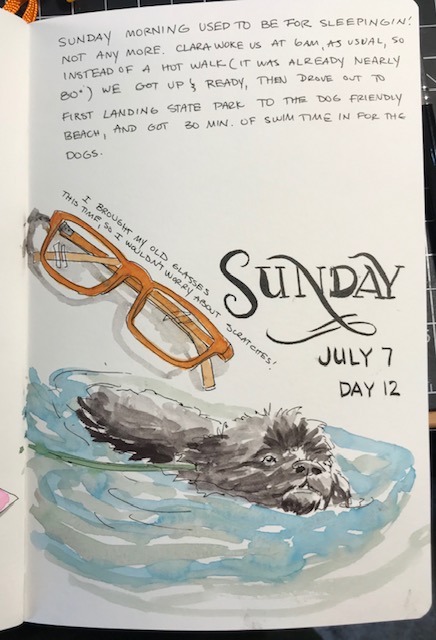 SUNDAY MORNING USED TO BE FOR SLEEPING IN!
NOT ANY MORE. CLARA WOKE US AT 6AM, AS USUAL, SO
INSTEAD OF A HOT WALK (IT WAS ALREADY NEARLY
80°) WE GOT UP & READY, THEN DROVE OUT TO
FIRST LANDING STATE PARK TO THE DOG FRIENDLY
BEACH, AND GOT 30 MIN. OF SWIM TIME IN FOR THE
DOGS.
I BROUGHT MY OLD GLASSES
THIS TIME, SO I WOULDN'T WORRY ABOUT SCRATCHES!
SUNDAY
JULY 7
DAY 12